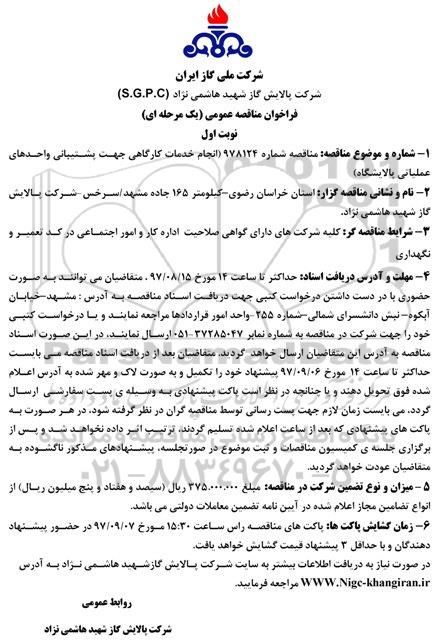 شرکت ملی گاز ایران
شرکت پالایش گاز شهید هاشمی نژاد (S.G.P.C)
فراخوان مناقصه عمومی (یک مرحله ای)
نوبت اول
۱- شماره و موضوع مناقصه: مناقصه شماره ۹۷۸۱۲۴ (انجام خدمات کارگاهی جهت پشتیبانی واحدهای
عملیاتی پالایشگاه)
۲- نام و نشانی مناقصه گزار: استان خراسان رضوی-کیلومتر ۱۶۵ جاده مشهد/سرخس-شرکت پالایش
گاز شهید هاشمی نژاد.
۳- شرایط مناقصه گر: کلیه شرکت های دارای گواهی صلاحیت اداره کار و امور اجتماعی در کد تعمیر و
نگهداری
۴- مهلت و آدرس دریافت اسناد: حداکثر تا ساعت ۱۴ مورخ ۹۷/۰۸/۱۵، متقاضیان می توانند به صورت
حضوری با در دست داشتن درخواست کتبی جهت دریافت اسناد مناقصه به آدرس : مشهد-خیابان
آبکوه-نبش دانشسرای شمالی-شماره ۲۵۵-واحد امور قراردادها مراجعه نمایند و یا درخواست کتبی
خود را جهت شرکت در مناقصه به شماره نمابر ۳۷۲۸۵۰۴۷-۰۵۱ ارسال نمایند، در این صورت اسناد
مناقصه به آدرس این متقاضیان ارسال خواهد گردید. متقاضیان بعد از دریافت اسناد مناقصه می بایست
حداکثر تا ساعت ۱۴ مورخ ۹۷/۰۹/۰۶ پیشنهاد خود را تکمیل و به صورت لاک و مهر شده به آدرس اعلام
شده فوق تحویل دهند و یا چنانچه در نظر است پاکت پیشنهادی به وسیله ی پست سفارشی ارسال
گردد، می بایست زمان لازم جهت پست رسانی توسط مناقصه گران در نظر گرفته شود، در هر صورت به
پاکت های پیشنهادی که بعد از ساعت اعلام شده تسلیم گردند، ترتیب اثر داده نخواهد شد و پس از
برگزاری جلسه ی کمیسیون مناقصات و ثبت موضوع در صورتجلسه، پیشنهادهای مذکور ناگشوده به
متقاضیان عودت خواهد گردید.
۵ - میزان و نوع تضمین شرکت در مناقصه: مبلغ ۳۷۵.۰۰۰.۰۰۰ ریال (سیصد و هفتاد و پنج میلیون ریال) از
انواع تضامین مجاز اعلام شده در آیین نامه تضمین معاملات دولتی می باشد.
۶- زمان گشایش پاکت ها: پاکت های مناقصه راس ساعت ۱۵:۳۰ مورخ ۹۷/۰۹/۰۷ در حضور پیشنهاد
دهندگان و با حداقل ۳ پیشنهاد قیمت گشایش خواهد یافت.
در صورت نیاز به دریافت اطلاعات بیشتر به سایت شرکت پالایش گازشهید هاشمی نژاد به آدرس
WWW.Nigc-khangiran.ir مراجعه فرمایید.
روابط عمومی
شرکت پالایش گاز شهید هاشمی نژاد
۰۲۱-۸۸۳۴۹۶۷۰-۵